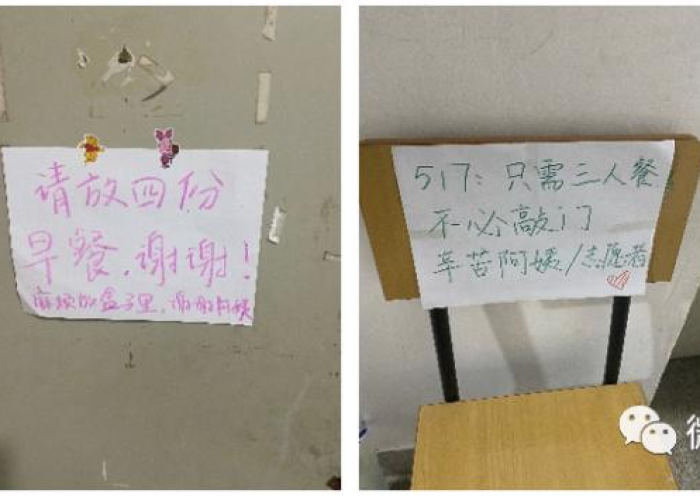 请放四份
早餐,谢谢!
麻烦放盒子里,谢谢阿姨
517:只需三人餐,
不必敲门
辛苦阿姨/志愿者